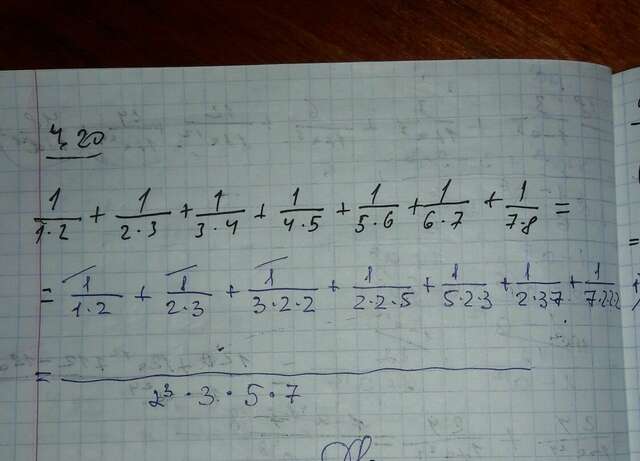 4.20
1/(1·2) + 1/(2·3) + 1/(3·4) + 1/(4·5) + 1/(5·6) + 1/(6·7) + 1/(7·8) =
= 1/(1·2) + 1/(2·3) + 1/(3·2·2) + 1/(2·2·5) + 1/(5·2·3) + 1/(2·3·7) + 1/(7·2·2·2)
= /(2³·3·5·7)